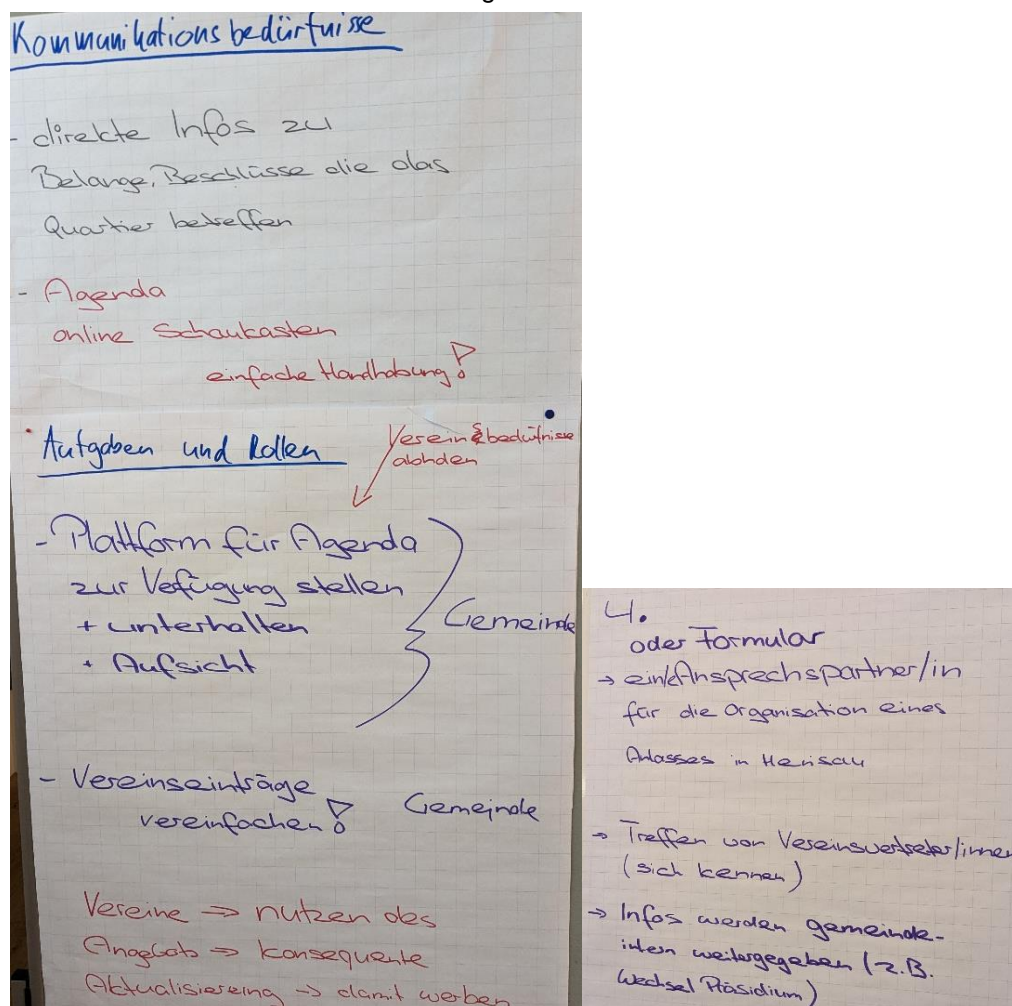 Kommunikationsbedürfnisse
- direkte Infos zu
Belange, Beschlüsse die das
Quartier betreffen
- Agenda
online Schaukasten
einfache Handhabung!
Aufgaben und Rollen
Vereinsbedüfnisse
abholen
- Plattform für Agenda
zur Vefügung stellen
+ unterhalten
+ Aufsicht
Gemeinde
- Vereinseinträge
vereinfachen!
Gemeinde
Vereine => nutzen des
Angebots => konsequente
Aktualisiereing -> damit werben
4.
oder Formular
→ ein/eAnsprechspartner/in
für die Organisation eines
Anlasses in Herisau
→ Treffen von Vereinsvertreter/innen
(sich kennen)
→ Infos werden gemeinde-
intern weitergegeben (z.B.
Wechsel Präsidium)